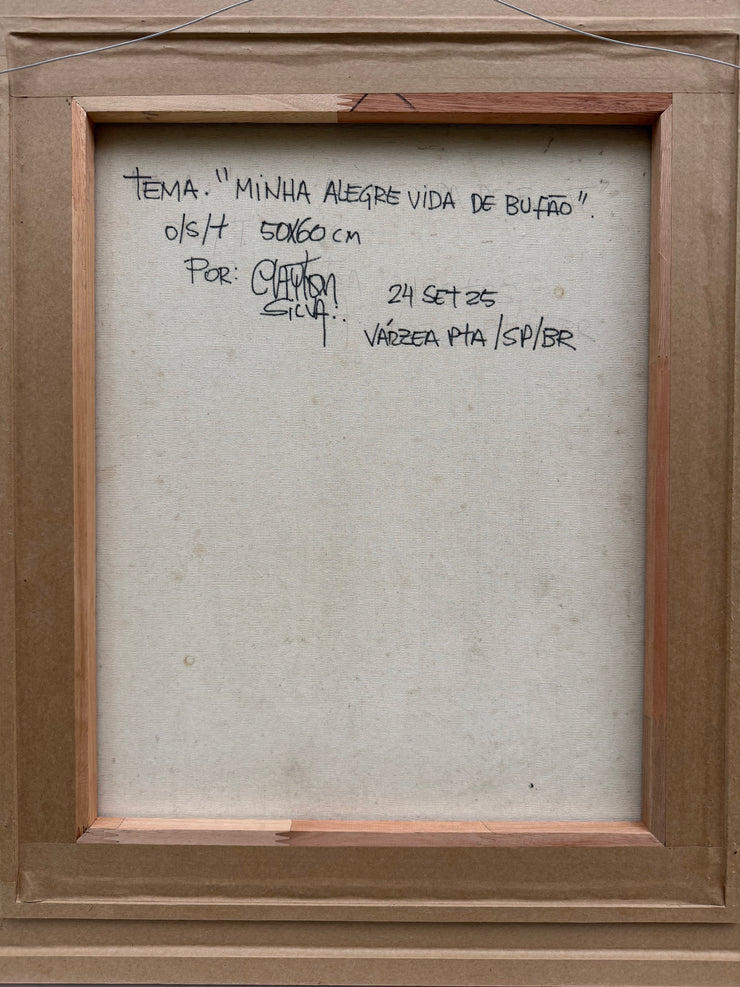 TEMA. "MINHA ALEGRE VIDA DE BUFÃO".
o/s/t 50X60 cm
POR: CLAYTON
SILVA..
24 SET 25
VÁRZEA PTA/SP/BR